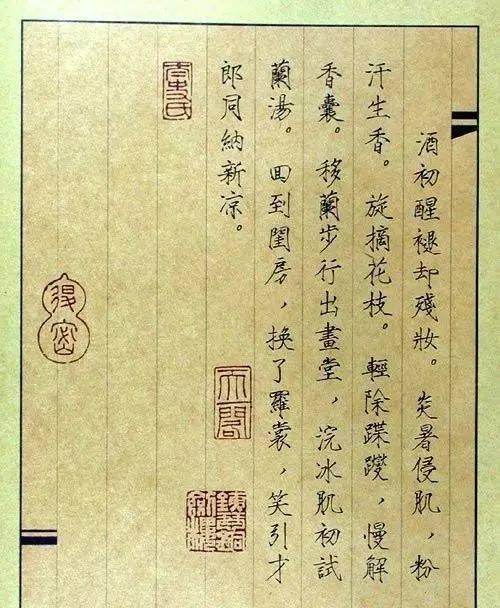 酒初醒褪却殘妝。炎暑侵肌，粉
汗生香。旋摘花枝。輕除蹀躞，慢解
香囊。移蘭步行出畫堂，浣冰肌初試
蘭湯。囬到閨房，换了羅裳，笑引才
郎同納新凉。